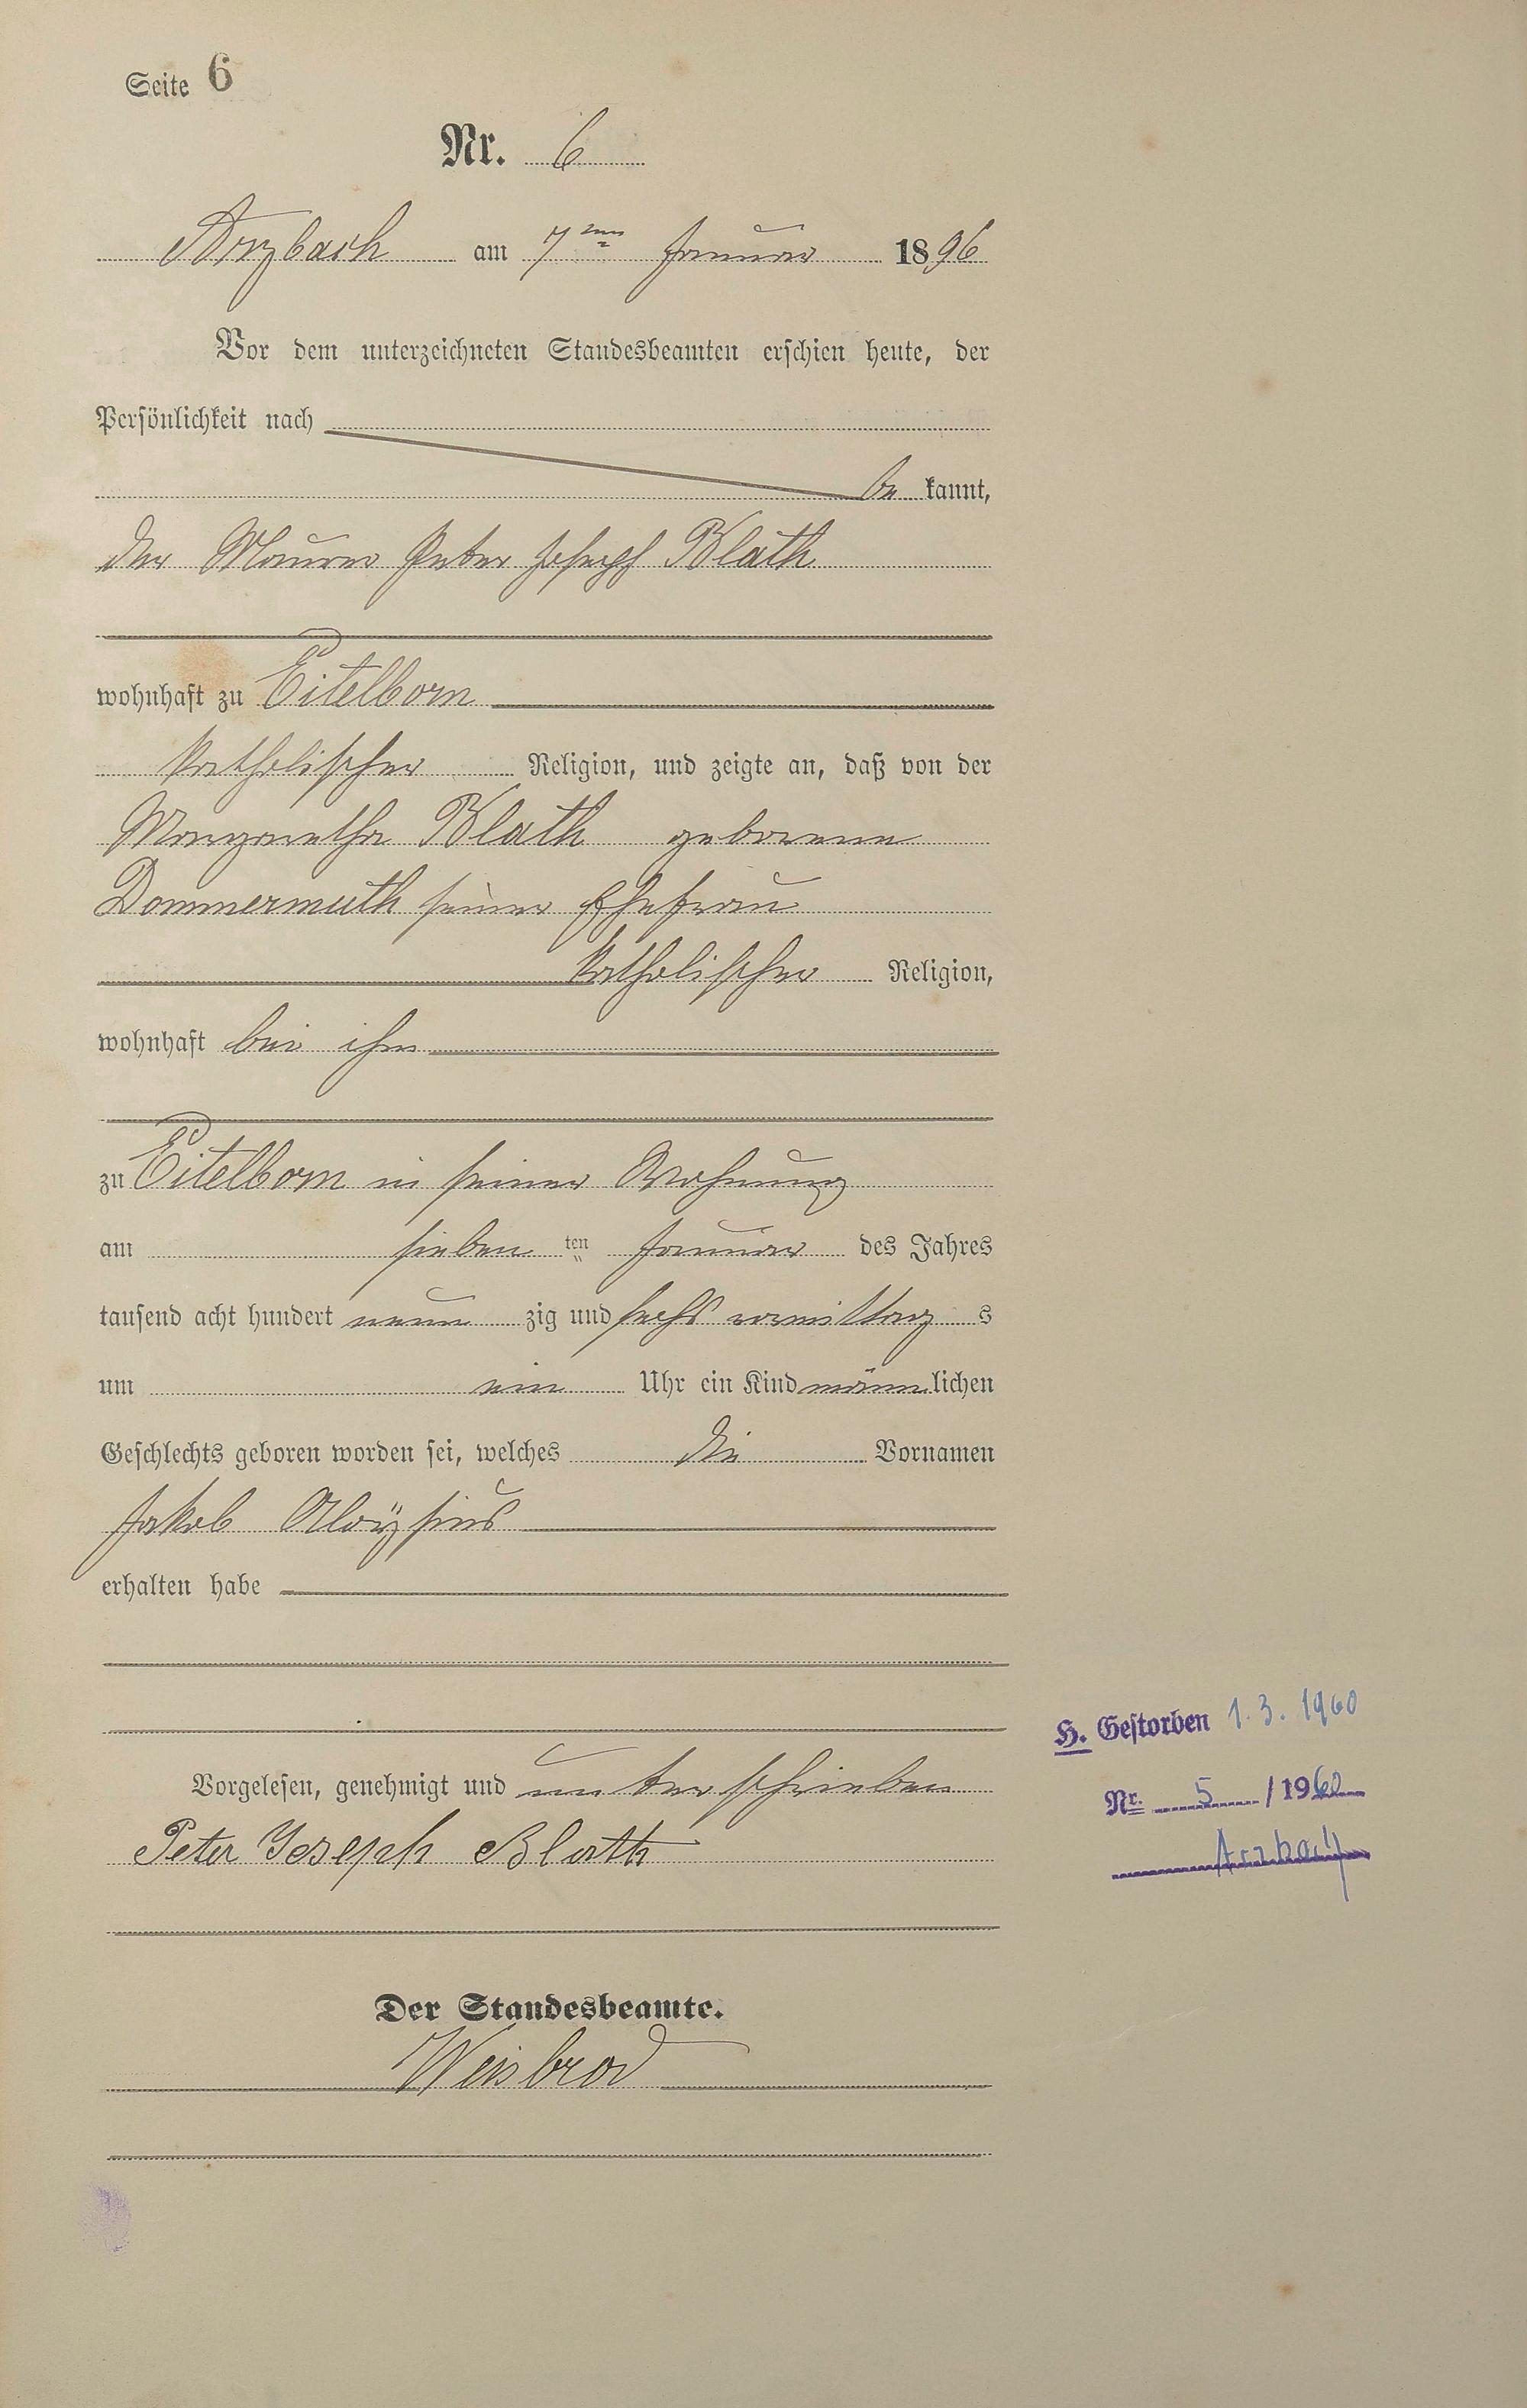 Seite 6
Nr. 6
Arzbach am 7ten Januar 1896
Vor dem unterzeichneten Standesbeamten erschien heute, der
Persönlichkeit nach
be kannt,
der Maurer Peter Joseph Blath
wohnhaft zu Eitelborn
katholischer Religion, und zeigte an, daß von der
Margaretha Blath geborene
Dommermuth seiner Ehefrau
katholischer Religion,
wohnhaft bei ihm
zu Eitelborn in seiner Wohnung
am sieben ten Januar des Jahres
tausend acht hundert neun zig und sechs vormittag s
um ein Uhr ein Kind männlichen
Geschlechts geboren worden sei, welches die Vornamen
Jakob Aloÿsius
erhalten habe
Vorgelesen, genehmigt und unterschrieben
Peter Joseph Blath
Der Standesbeamte.
Weisbrod
H. Gestorben 1.3.1960
Nr. 5 / 1960
Arzbach